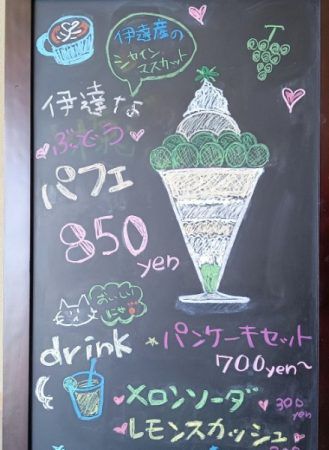 伊達産の
シャイン
マスカット
伊達な
ぶどう
パフェ
850
yen
おいしい
drink
パンケーキセット
700yen～
メロンソーダ
300
yen
レモンスカッシュ